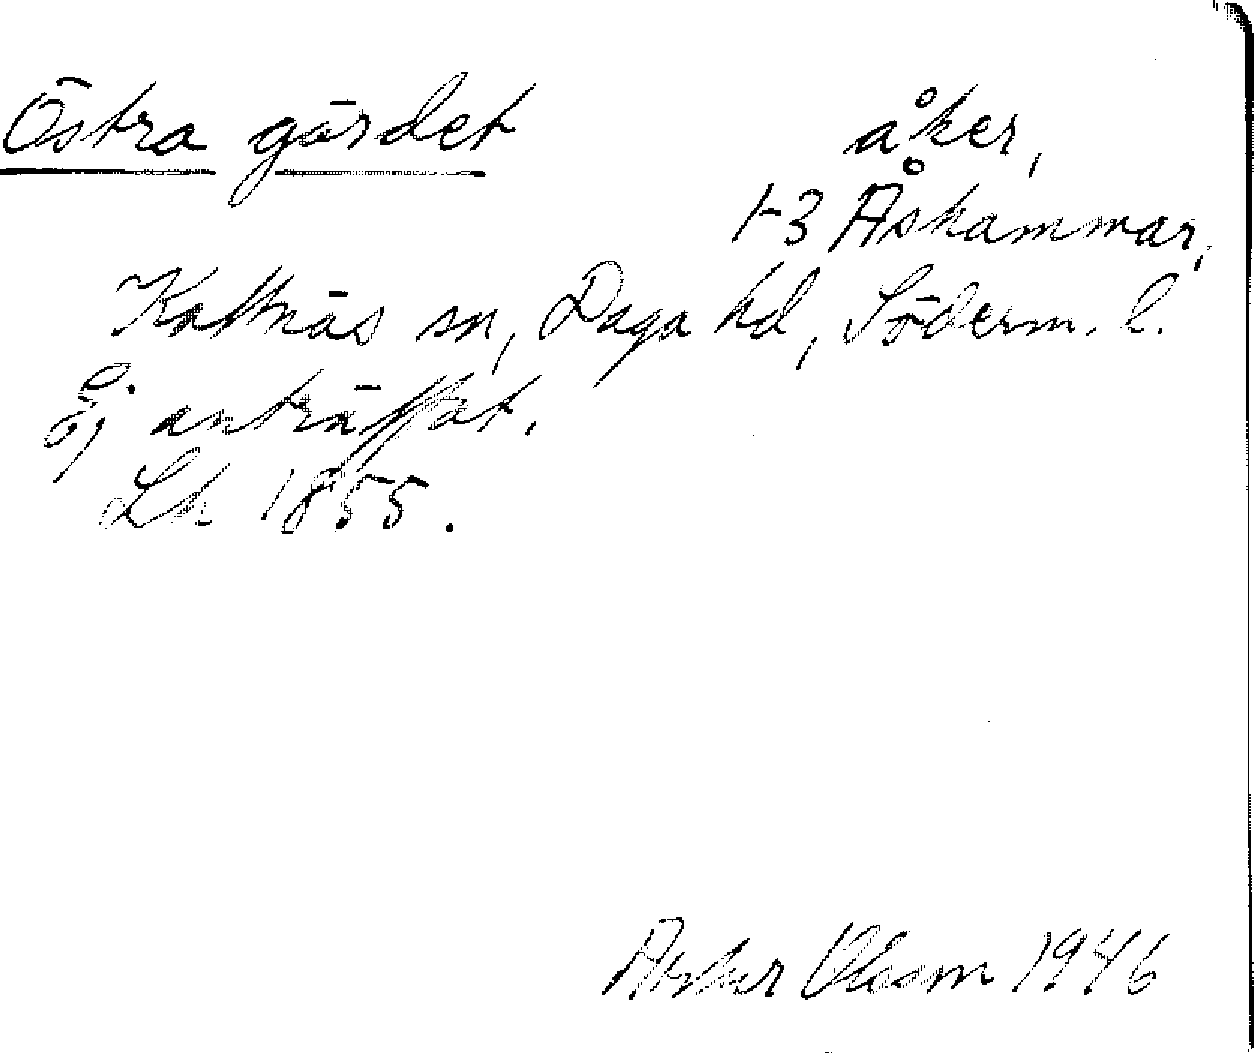 Östra gärdet åker,
1-3 Åskammar,
Kattnäs sn, Daga hd, Söderm. l.
Ej anträffat.
Lh 1855.
Arthur Olsson 1946